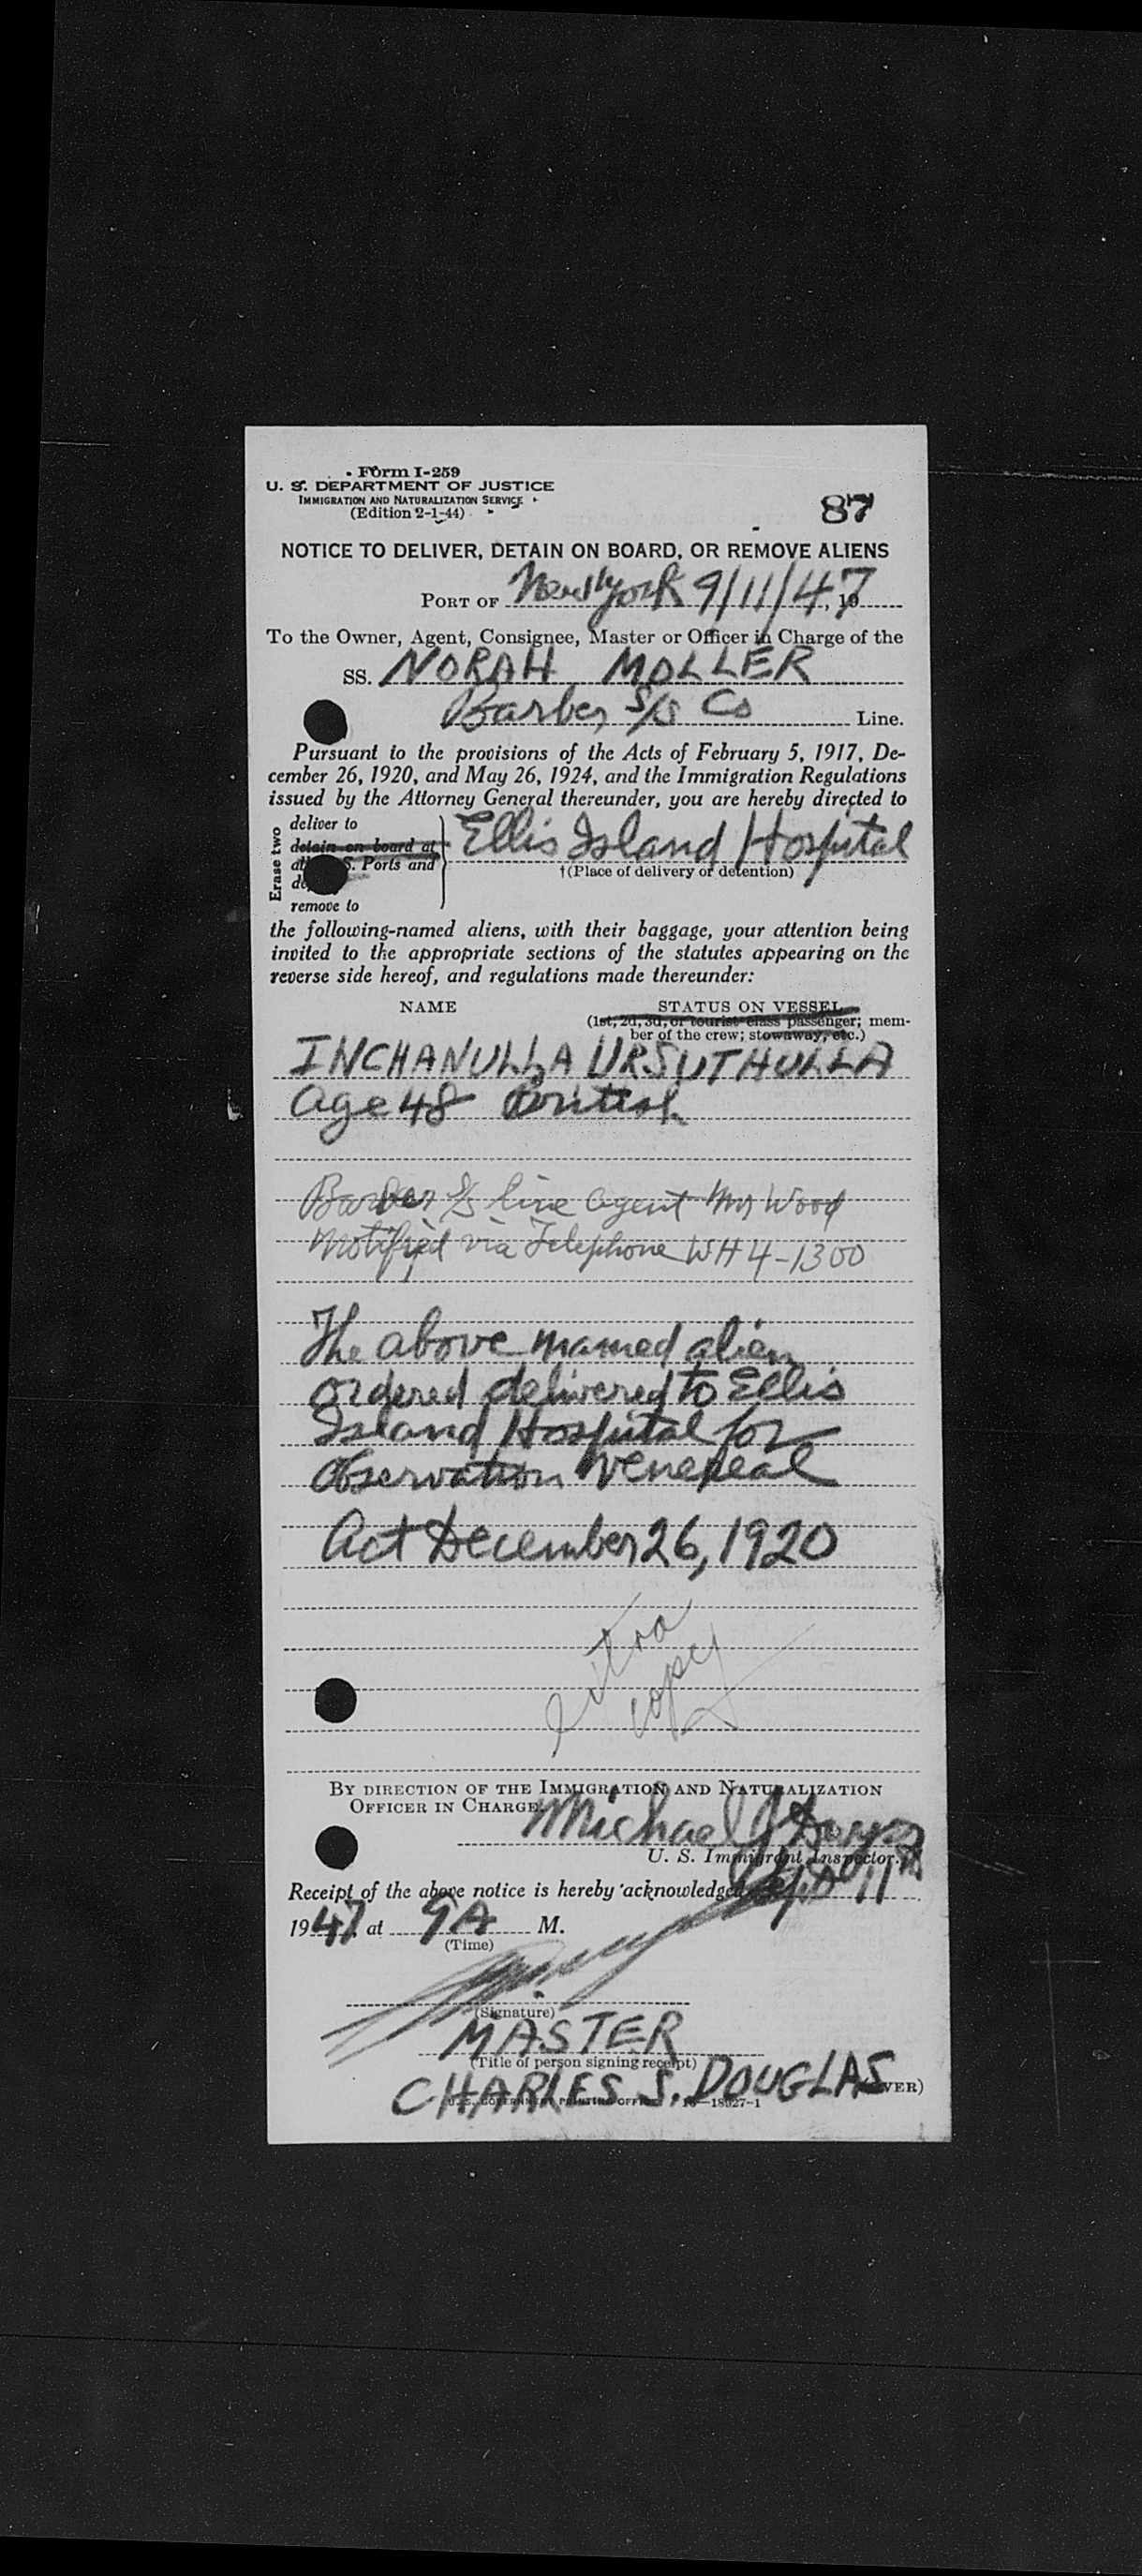 Form I-259
U. S. DEPARTMENT OF JUSTICE
IMMIGRATION AND NATURALIZATION SERVICE
(Edition 2-1-44)
87
NOTICE TO DELIVER, DETAIN ON BOARD, OR REMOVE ALIENS
PORT OF New York 9/11/47, 19
To the Owner, Agent, Consignee, Master or Officer in Charge of the
SS. NORAH MOLLER
Barber S/S Co Line.
Pursuant to the provisions of the Acts of February 5, 1917, De-
cember 26, 1920, and May 26, 1924, and the Immigration Regulations
issued by the Attorney General thereunder, you are hereby directed to
Erase two
deliver to
detain on board at
S. Ports and
remove to
Ellis Island Hospital
†(Place of delivery or detention)
the following-named aliens, with their baggage, your attention being
invited to the appropriate sections of the statutes appearing on the
reverse side hereof, and regulations made thereunder:
NAME STATUS ON VESSEL
(1st, 2d, 3d, or tourist class passenger; mem-
ber of the crew; stowaway, etc.)
INCHANULLA URSUTHULLA
Age 48 British
Barber S/S Line Agent Mr Wood
Notified via Telephone WH 4-1300
The above named alien
ordered delivered to Ellis
Island Hospital for
Observation Venereal
Act December 26, 1920
extra
copy
BY DIRECTION OF THE IMMIGRATION AND NATURALIZATION
OFFICER IN CHARGE.
Michael J
U. S. Immigrant Inspector.
Receipt of the above notice is hereby acknowledged Sept 11
1947, at 9 A M.
(Time)
(Signature)
MASTER
(Title of person signing receipt)
CHARLES S. DOUGLAS
VER)
U. S. GOVERNMENT PRINTING OFFICE 16—18927-1